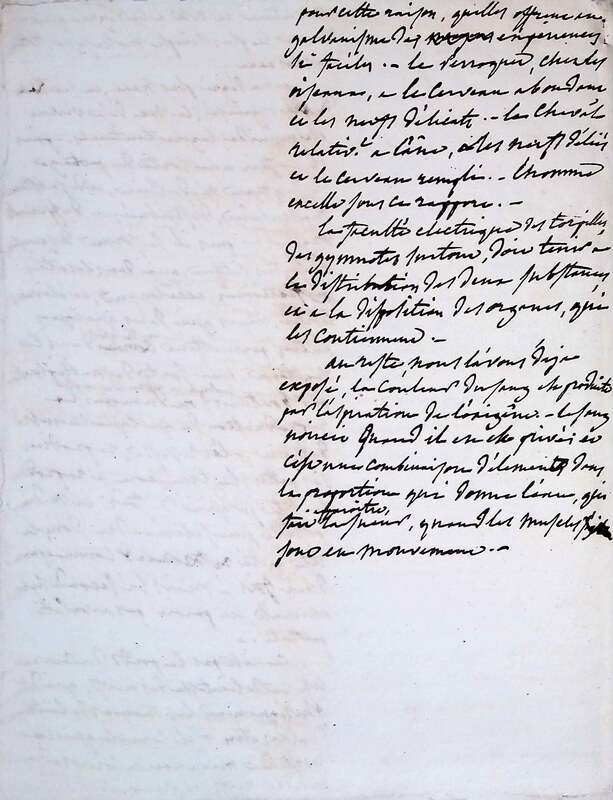 pour cette raison, quelles offrent au
galvanisme des experiences
si faciles. - le perroquet, chez les
oiseaux, a le cerveau abondant
et les nerfs délicats. - les cheval
relativt. a l'âne, a les nerfs déliés
et le cerveau rempli. - l'homme
excelle sous ce rapport. -
la faculté electrique des torpilles
des gymnotes surtout, doit tenir a
la distribution des deux substances,
et a la disposition des organes, qui
les contiennent -
au reste nous l'avons déja
exposé, la couleur du sang est produite
par l'aspiration de l'oxigêne. - le sang
noircit quand il en est privé et
c'est une combinaison d'élements dans
la proportion qui donne l'eau, qui
fait paroitre la sueur, quand les muscles
sont en mouvement. -